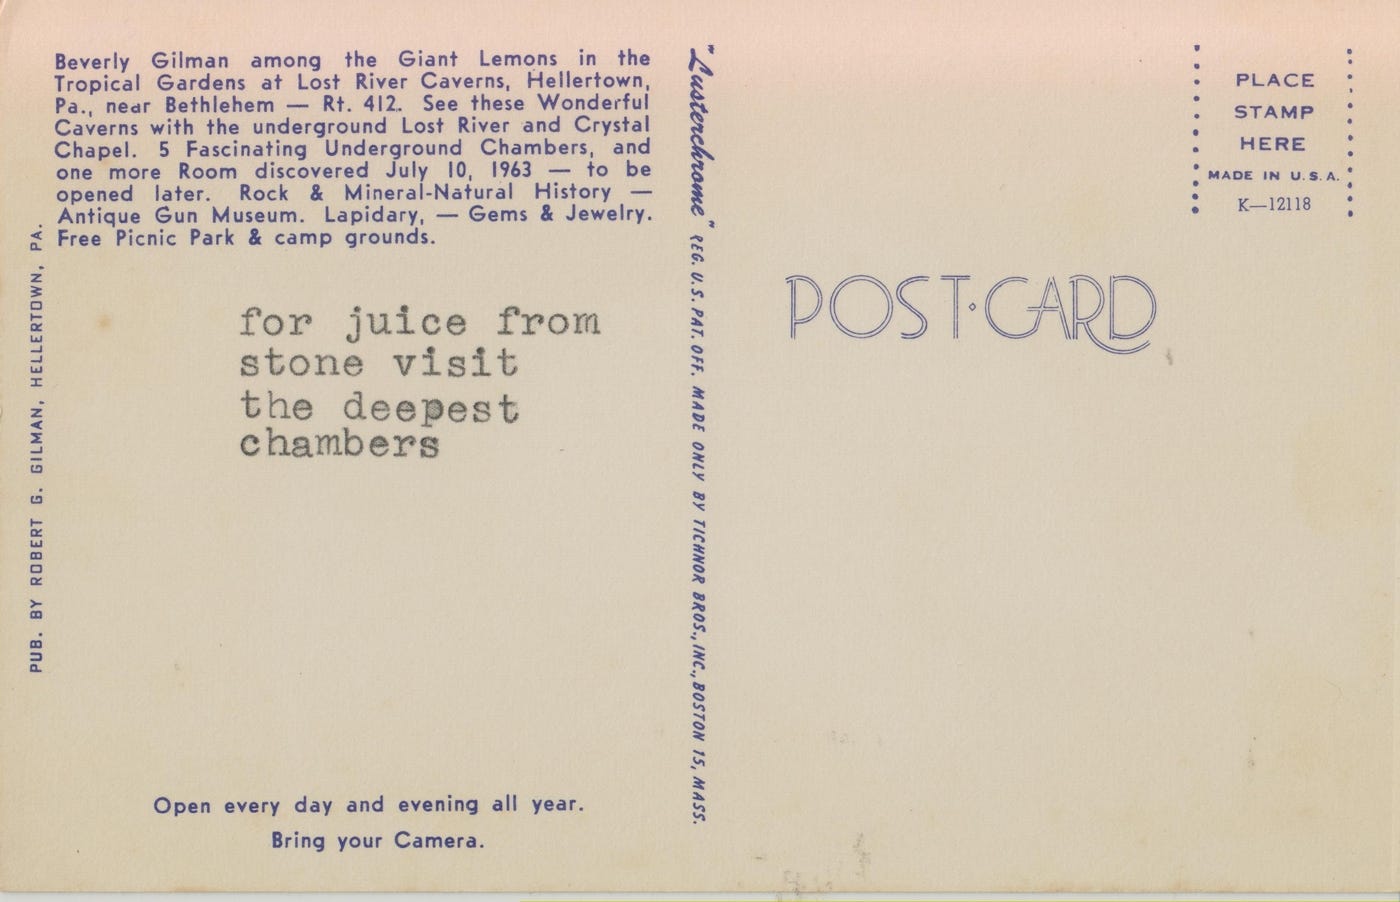 Beverly Gilman among the Giant Lemons in the
Tropical Gardens at Lost River Caverns, Hellertown,
Pa., near Bethlehem — Rt. 412. See these Wonderful
Caverns with the underground Lost River and Crystal
Chapel. 5 Fascinating Underground Chambers, and
one more Room discovered July 10, 1963 — to be
opened later. Rock & Mineral-Natural History —
Antique Gun Museum. Lapidary, — Gems & Jewelry.
Free Picnic Park & camp grounds.
PUB. BY ROBERT G. GILMAN, HELLERTOWN, PA.
for juice from
stone visit
the deepest
chambers
Open every day and evening all year.
Bring your Camera.
"Lusterchrome" REG. U.S. PAT. OFF. MADE ONLY BY TICHNOR BROS., INC., BOSTON 15, MASS.
POST·CARD
PLACE
STAMP
HERE
MADE IN U.S.A.
K—12118